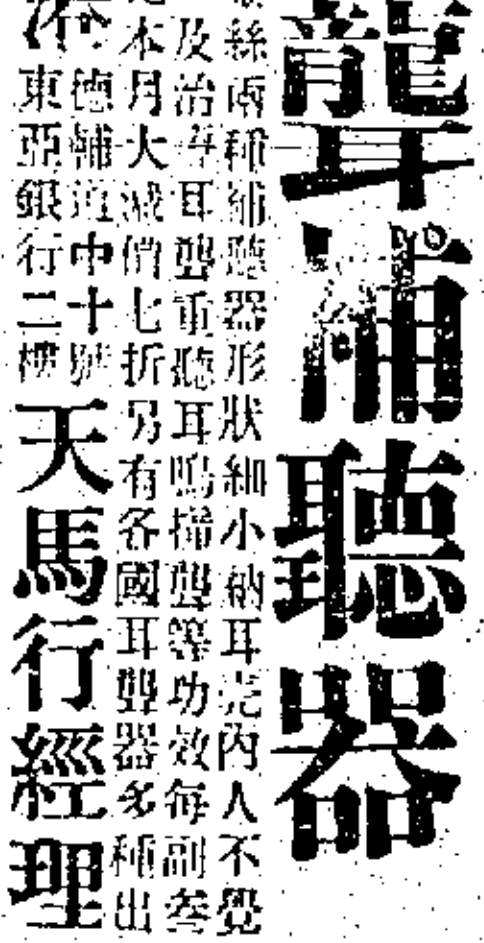 龍耳補聽器
絲兩種補聽器形狀細小納耳壳內人不覺
及治 耳聾重聽耳鳴 聾等功效每副叁
本月大減價七折另有各國耳聾器多種出
德輔道中十號
東亞銀行二樓
天馬行經理